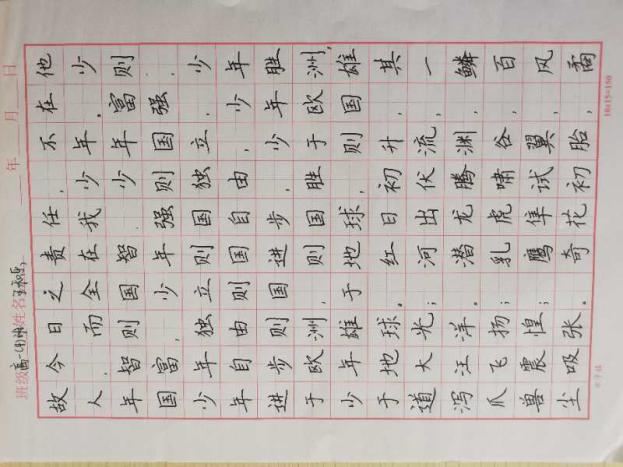 班级 高一 班 姓名 年 月 日
故今日之责任，不在他
人，而全在我少年。少
年智则国智，少年富则
国富，少年强则国强，
少年独立则国独立，少
年自由则国自由，少年
进步则国进步，少年胜
于欧洲，则国胜于欧洲，
少年雄于地球，则国雄
于地球。红日初升，其
道大光；河出伏流，一
泻汪洋。潜龙腾渊，鳞
爪飞扬；乳虎啸谷，百
兽震惶；鹰隼试翼，风
尘吸张。奇花初胎，矞
10×15=150